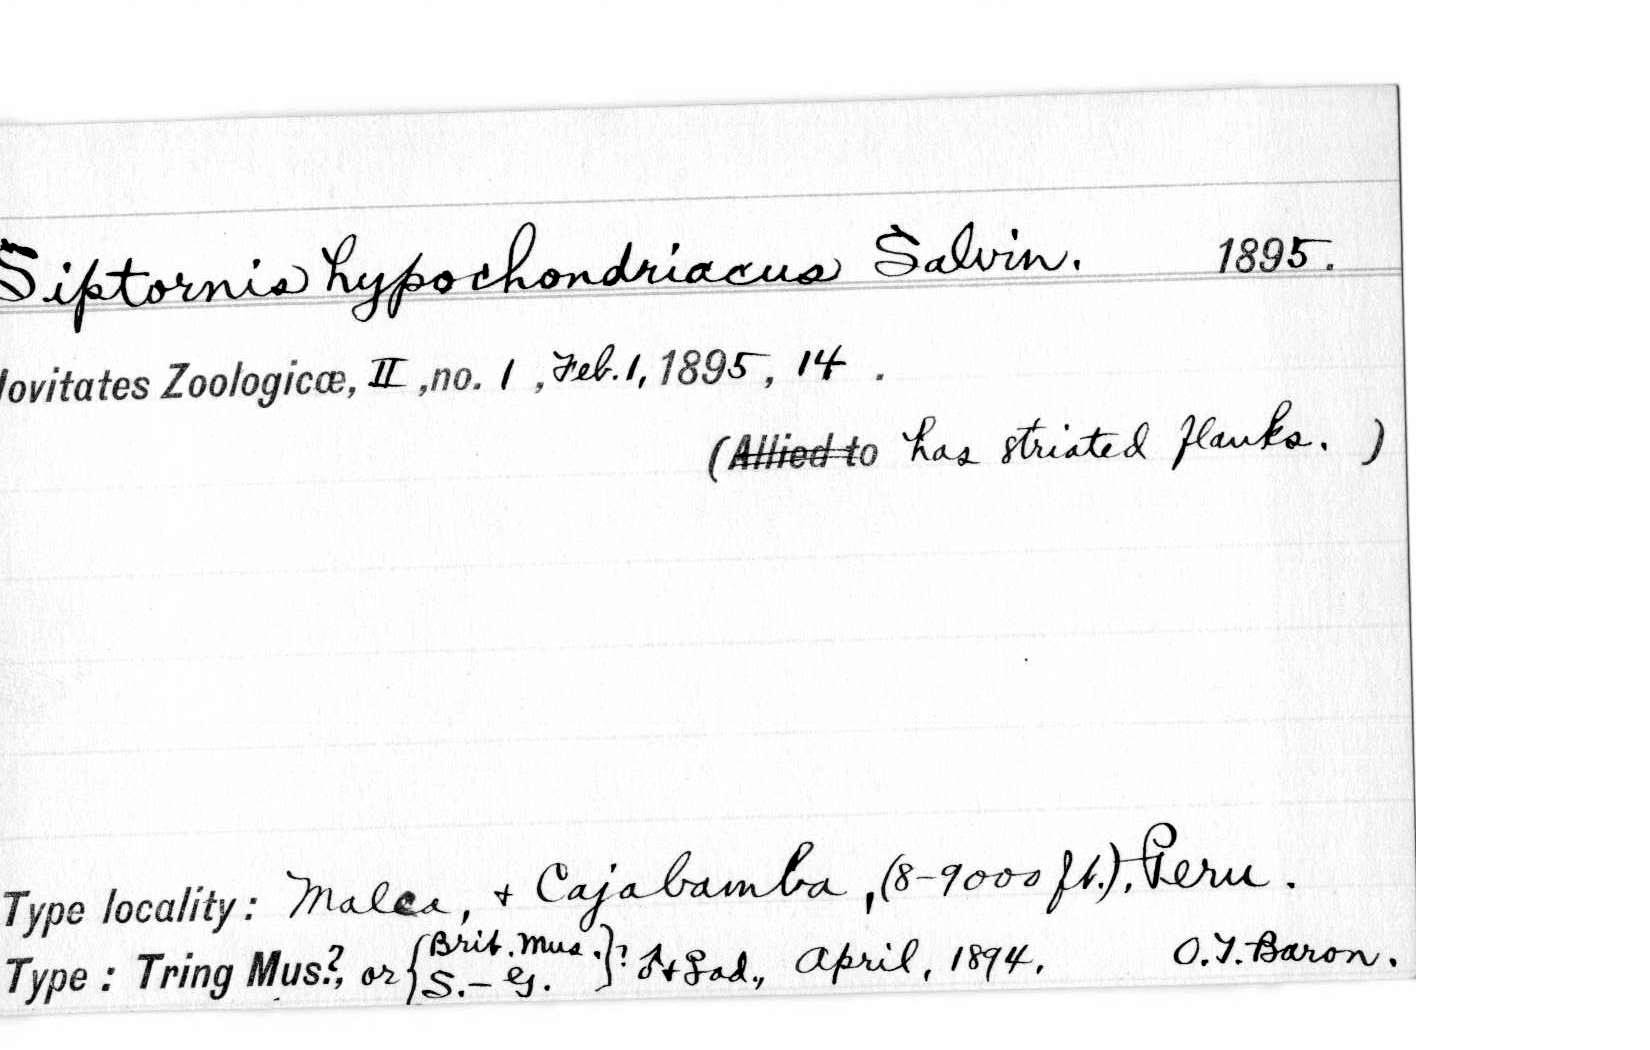 Siptornis hypochondriacus Salvin. 1895.
ovitates Zoologicæ, II, no. 1, Feb. 1, 1895, 14.
(Allied to has striated flanks. )
Type locality: Malca, + Cajabamba, (8-9000 ft.), Peru.
Type: Tring Mus.?, or {Brit. Mus. S.-G.}? ♂+♀ ad., April, 1894. O.T. Baron.